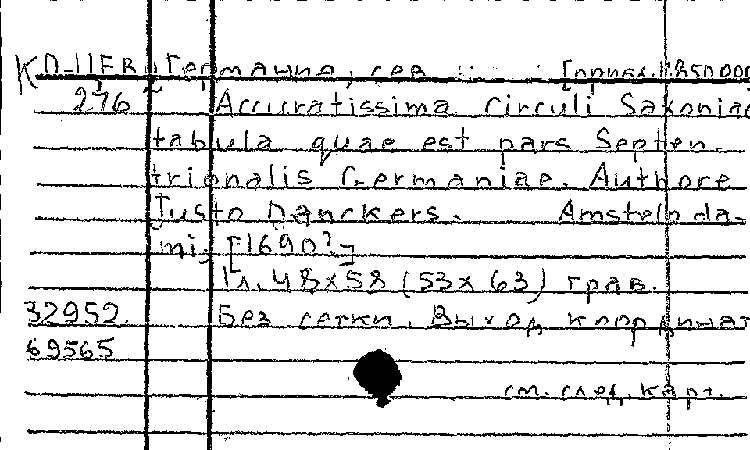 КО-IIFR Германия, сев. [прибл. 1:850000
276 Accuratissima Circuli Saxoniae
tabula quae est pars Septen-
trionalis Germaniae. Authore
Justo Danckers. Amsteloda-
mi, [1690?]
1 л. 48x58 (53x63) грав.
32952 Без сетки. Выход координат
69565
см. след. карт.